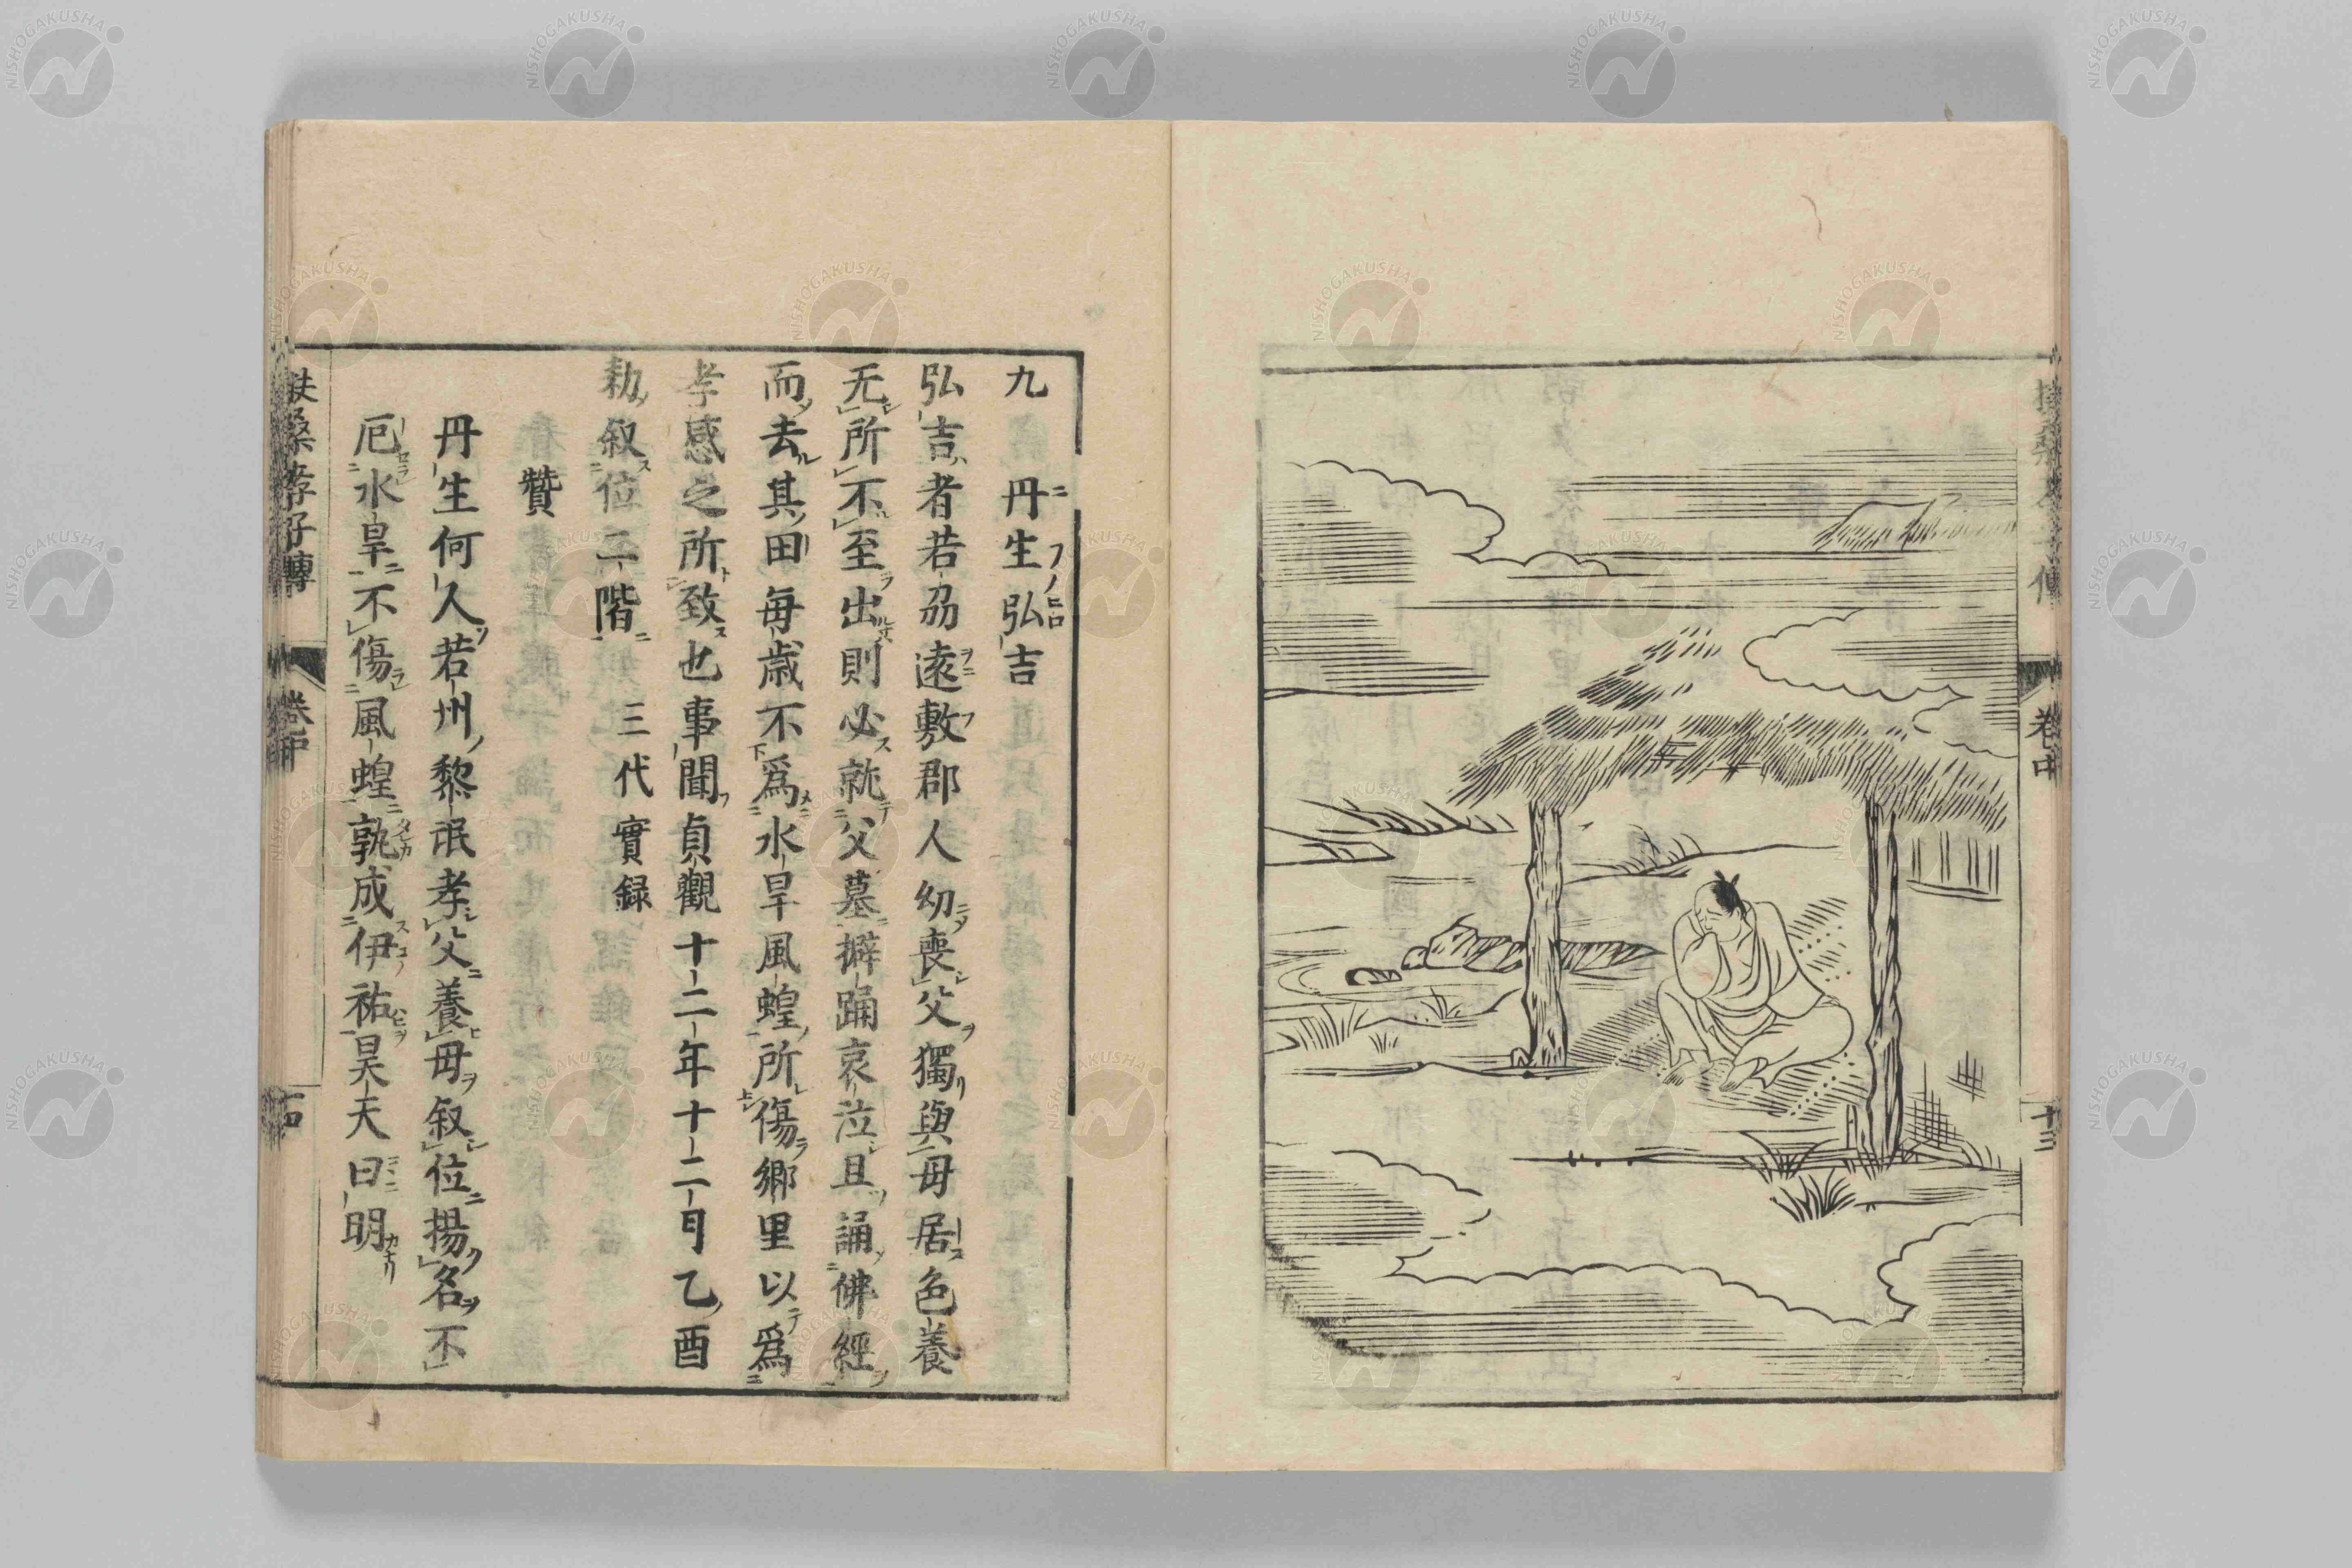 扶桑孝子傳 卷中 十三
九 丹生弘吉
弘吉者若刕遠敷郡人幼喪父獨與母居色養
无所不至出則必就父墓擗踊哀泣且誦佛經
而去其田每歳不爲水旱風蝗所傷鄉里以爲
孝感之所致也事聞貞觀十二年十二月乙酉
勅叙位二階 三代實録
贊
丹生何人若州黎氓孝父養母叙位揚名不
厄水旱不傷風蝗孰成伊祐昊天曰明
扶桑孝子傳 卷中 十四
NISHOGAKUSHA